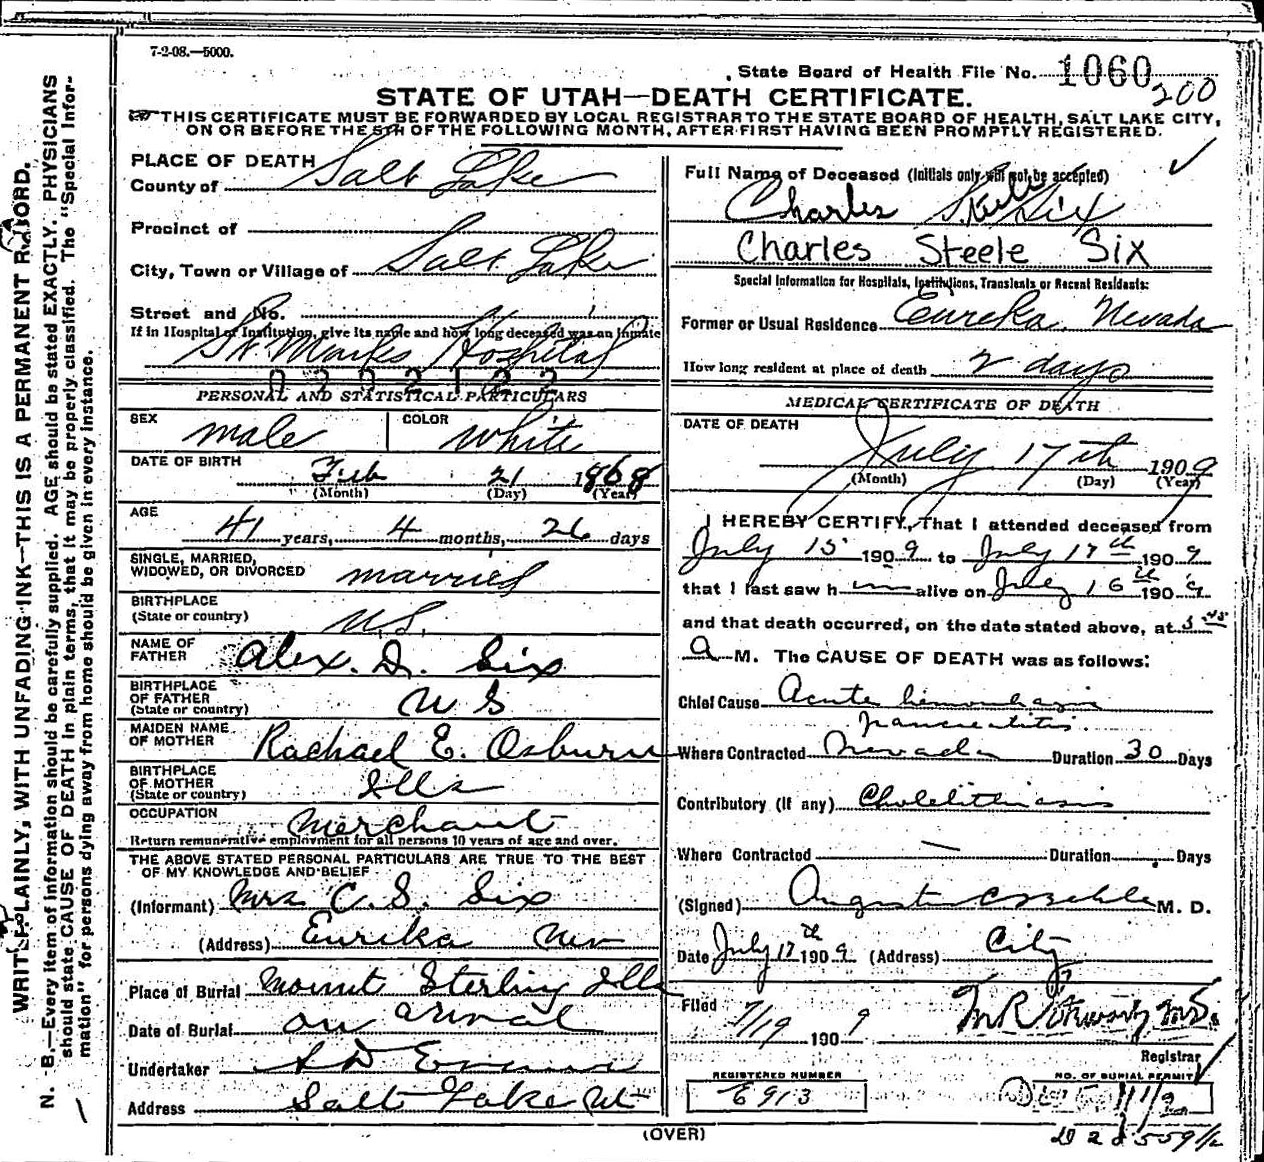 7-2-08.—5000.
State Board of Health File No. 1060
200
STATE OF UTAH—DEATH CERTIFICATE.
THIS CERTIFICATE MUST BE FORWARDED BY LOCAL REGISTRAR TO THE STATE BOARD OF HEALTH, SALT LAKE CITY,
ON OR BEFORE THE 5TH OF THE FOLLOWING MONTH, AFTER FIRST HAVING BEEN PROMPTLY REGISTERED.
WRITE PLAINLY, WITH UNFADING INK—THIS IS A PERMANENT RECORD.
N. B.—Every item of information should be carefully supplied. AGE should be stated EXACTLY. PHYSICIANS
should state CAUSE OF DEATH in plain terms, that it may be properly classified. The "Special Infor-
mation" for persons dying away from home should be given in every instance.
PLACE OF DEATH
County of Salt Lake
Precinct of
City, Town or Village of Salt Lake
Street and No.
If in Hospital or Institution, give its name and how long deceased was an Inmate
St. Marks Hospital
0202122
PERSONAL AND STATISTICAL PARTICULARS
SEX male COLOR white
DATE OF BIRTH Feb 21 1868
(Month) (Day) (Year)
AGE
41 years, 4 months, 26 days
SINGLE, MARRIED,
WIDOWED, OR DIVORCED married
BIRTHPLACE
(State or country) U.S.
NAME OF
FATHER Alex. D. Six
BIRTHPLACE
OF FATHER
(State or country) U S
MAIDEN NAME
OF MOTHER Rachael E. Osburn
BIRTHPLACE
OF MOTHER
(State or country) Ills
OCCUPATION Merchant
Return remunerative employment for all persons 10 years of age and over.
THE ABOVE STATED PERSONAL PARTICULARS ARE TRUE TO THE BEST
OF MY KNOWLEDGE AND BELIEF
(Informant) Mrs C. S. Six
(Address) Eureka Nev
Place of Burial Mount Sterling Ills
Date of Burial on arival
Undertaker S D Evans
Address Salt Lake Ut
Full Name of Deceased (Initials only will not be accepted)
Charles Steele Six
Charles Steele Six
Special Information for Hospitals, Institutions, Transients or Recent Residents:
Former or Usual Residence Eureka Nevada
How long resident at place of death 2 days
MEDICAL CERTIFICATE OF DEATH
DATE OF DEATH
July 17th 1909
(Month) (Day) (Year)
I HEREBY CERTIFY, That I attended deceased from
July 15 1909 to July 17th 1909
that I last saw him alive on July 16th 1909
and that death occurred, on the date stated above, at
A M. The CAUSE OF DEATH was as follows:
Chief Cause Acute hemorrhagic
pancreatitis.
Where Contracted Nevada Duration 30 Days
Contributory (if any) Cholelithiasis
Where Contracted — Duration Days
(Signed) M. D.
Date July 17th 1909 (Address) City
Filed 7/19 1909
Registrar
REGISTERED NUMBER
E913
NO. OF BURIAL PERMIT
(OVER)